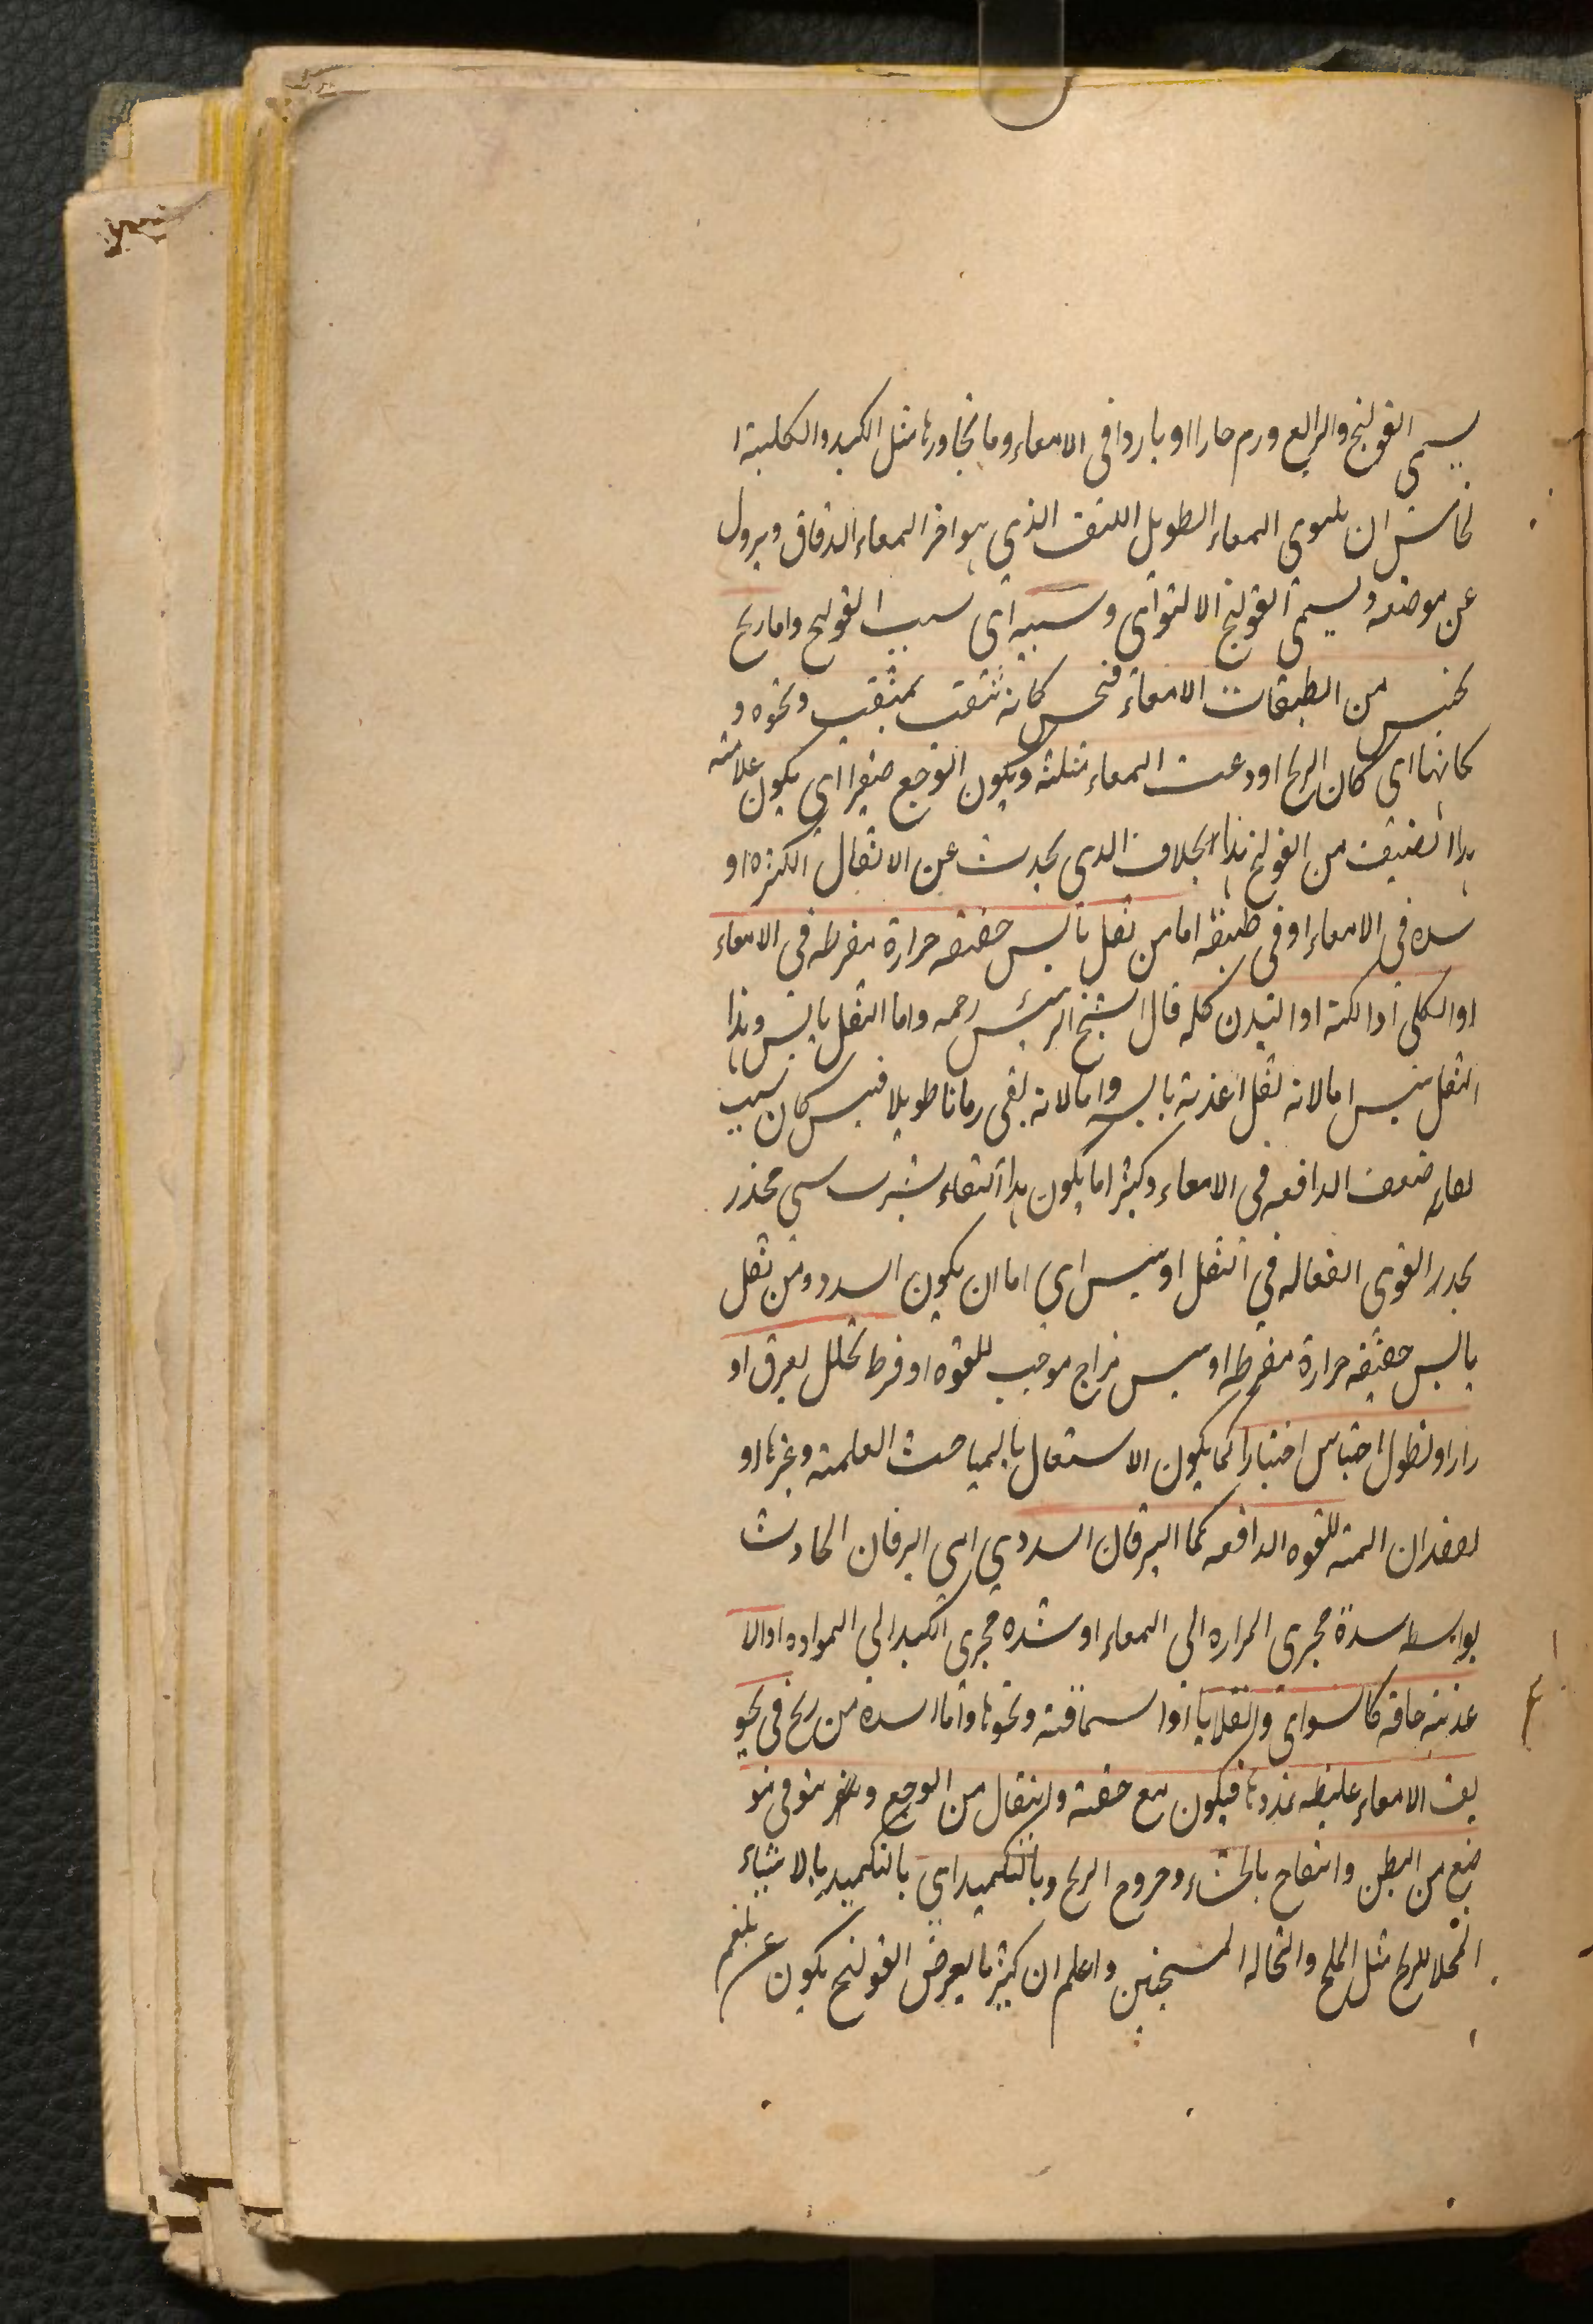 يسمى القولنج والرابع ورم حارا او باردا فى الامعاء وما تجاورها مثل الكبد والكلية ا
لخامس ان يلتوى المعاء الطويل اللفف الذى هو اخر المعاء الدقاق ويزول
عن موضعه ويسمى القولنج الالتوائى وسببه اى سبب القولنج واما ريح
تحتبس من الطبقات الامعاء فتحس كانه تثقب بمثقب ونحوه و
كانها اى كان الريح اودعت المعاء مثلثه ويكون الوجع صغيرا اى يكون علامته
هذا الضيق من القولنج هذا بخلاف الذى يحدث عن الاثفال الكثيرة او
سده فى الامعاء او فى طبقة اما من ثفل يابس جففته حرارة مفرطه فى الامعاء
او الكلى او الكبد او البدن كله قال الشيخ الرئيس رحمه واما الثفل يابس وهذا
الثفل ييبس اما لانه ثفل اغذية يابسه واما لانه بقى زمانا طويلا فيبس كان سبب
بقائه ضعف الدافعه فى الامعاء وكثيرا ما يكون هذا البقاء شرب شى مخدر
يخدر القوى الفعاله فى الثفل او يبس اى اما ان يكون السدد ومن ثفل
يابس جففته حرارة مفرطه او يبس مزاج موجب للقوة او فرط تحلل بعرق او
رار او لطول احتباس اختيارا كما يكون الاستعمال بالمباحث العلمية وغيرها او
لفقدان المنبه للقوه الدافعه كما اليرقان السددي اى اليرقان الحادث
بواسطه سدة مجرى المراره الى المعاء او شده مجرى الكبد الى المواده او الا
غذية جافه كالسواى والقلايا او السماقية ونحوها واما السده من ريح فى تجو
يف الامعاء غليظه تمددها فيكون مع خفة وانتقال من الوجع ونفخ نتو فى مو
ضع من البطن وانتفاع بالجشاء وخروج الريح وبالتكميد اى بالتكميد بالاشياء
المحلل للريح مثل الملح والنخاله المسخنين واعلم ان كثيرا ما يعرض القولنج يكون عن بلغم